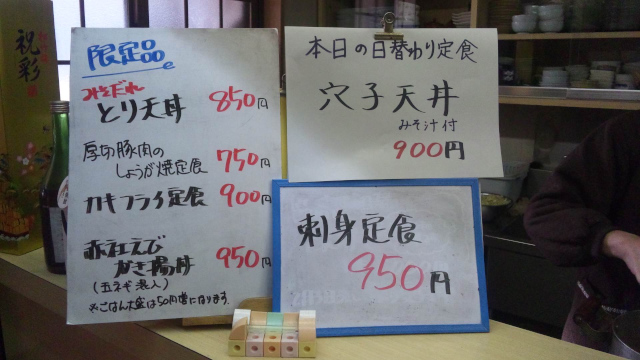 祝彩
限定品
みそだれ
とり天丼 850円
厚切豚肉の
しょうが焼定食 750円
カキフライ定食 900円
赤社えび
かき揚丼 950円
(玉ネギ混入)
※ごはん大盛は50円増になります
本日の日替わり定食
穴子天丼
みそ汁付
900円
刺身定食
950円